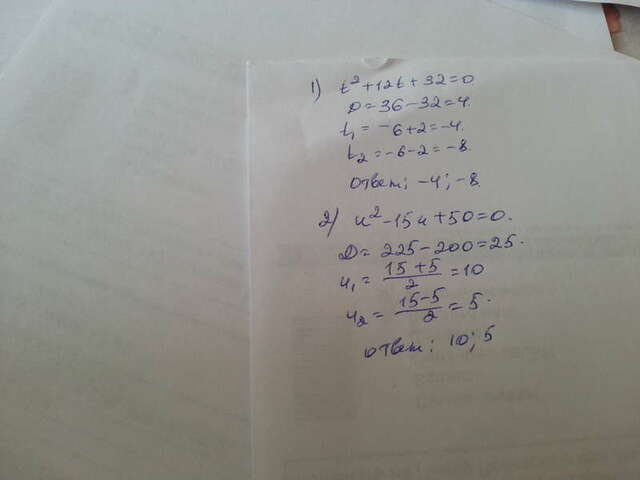 1) t²+12t+32=0
D=36-32=4.
t₁=-6+2=-4.
t₂=-6-2=-8.
ответ: -4; -8.
2) u²-15u+50=0.
D=225-200=25.
u₁=(15+5)/2=10
u₂=(15-5)/2=5.
ответ: 10; 5